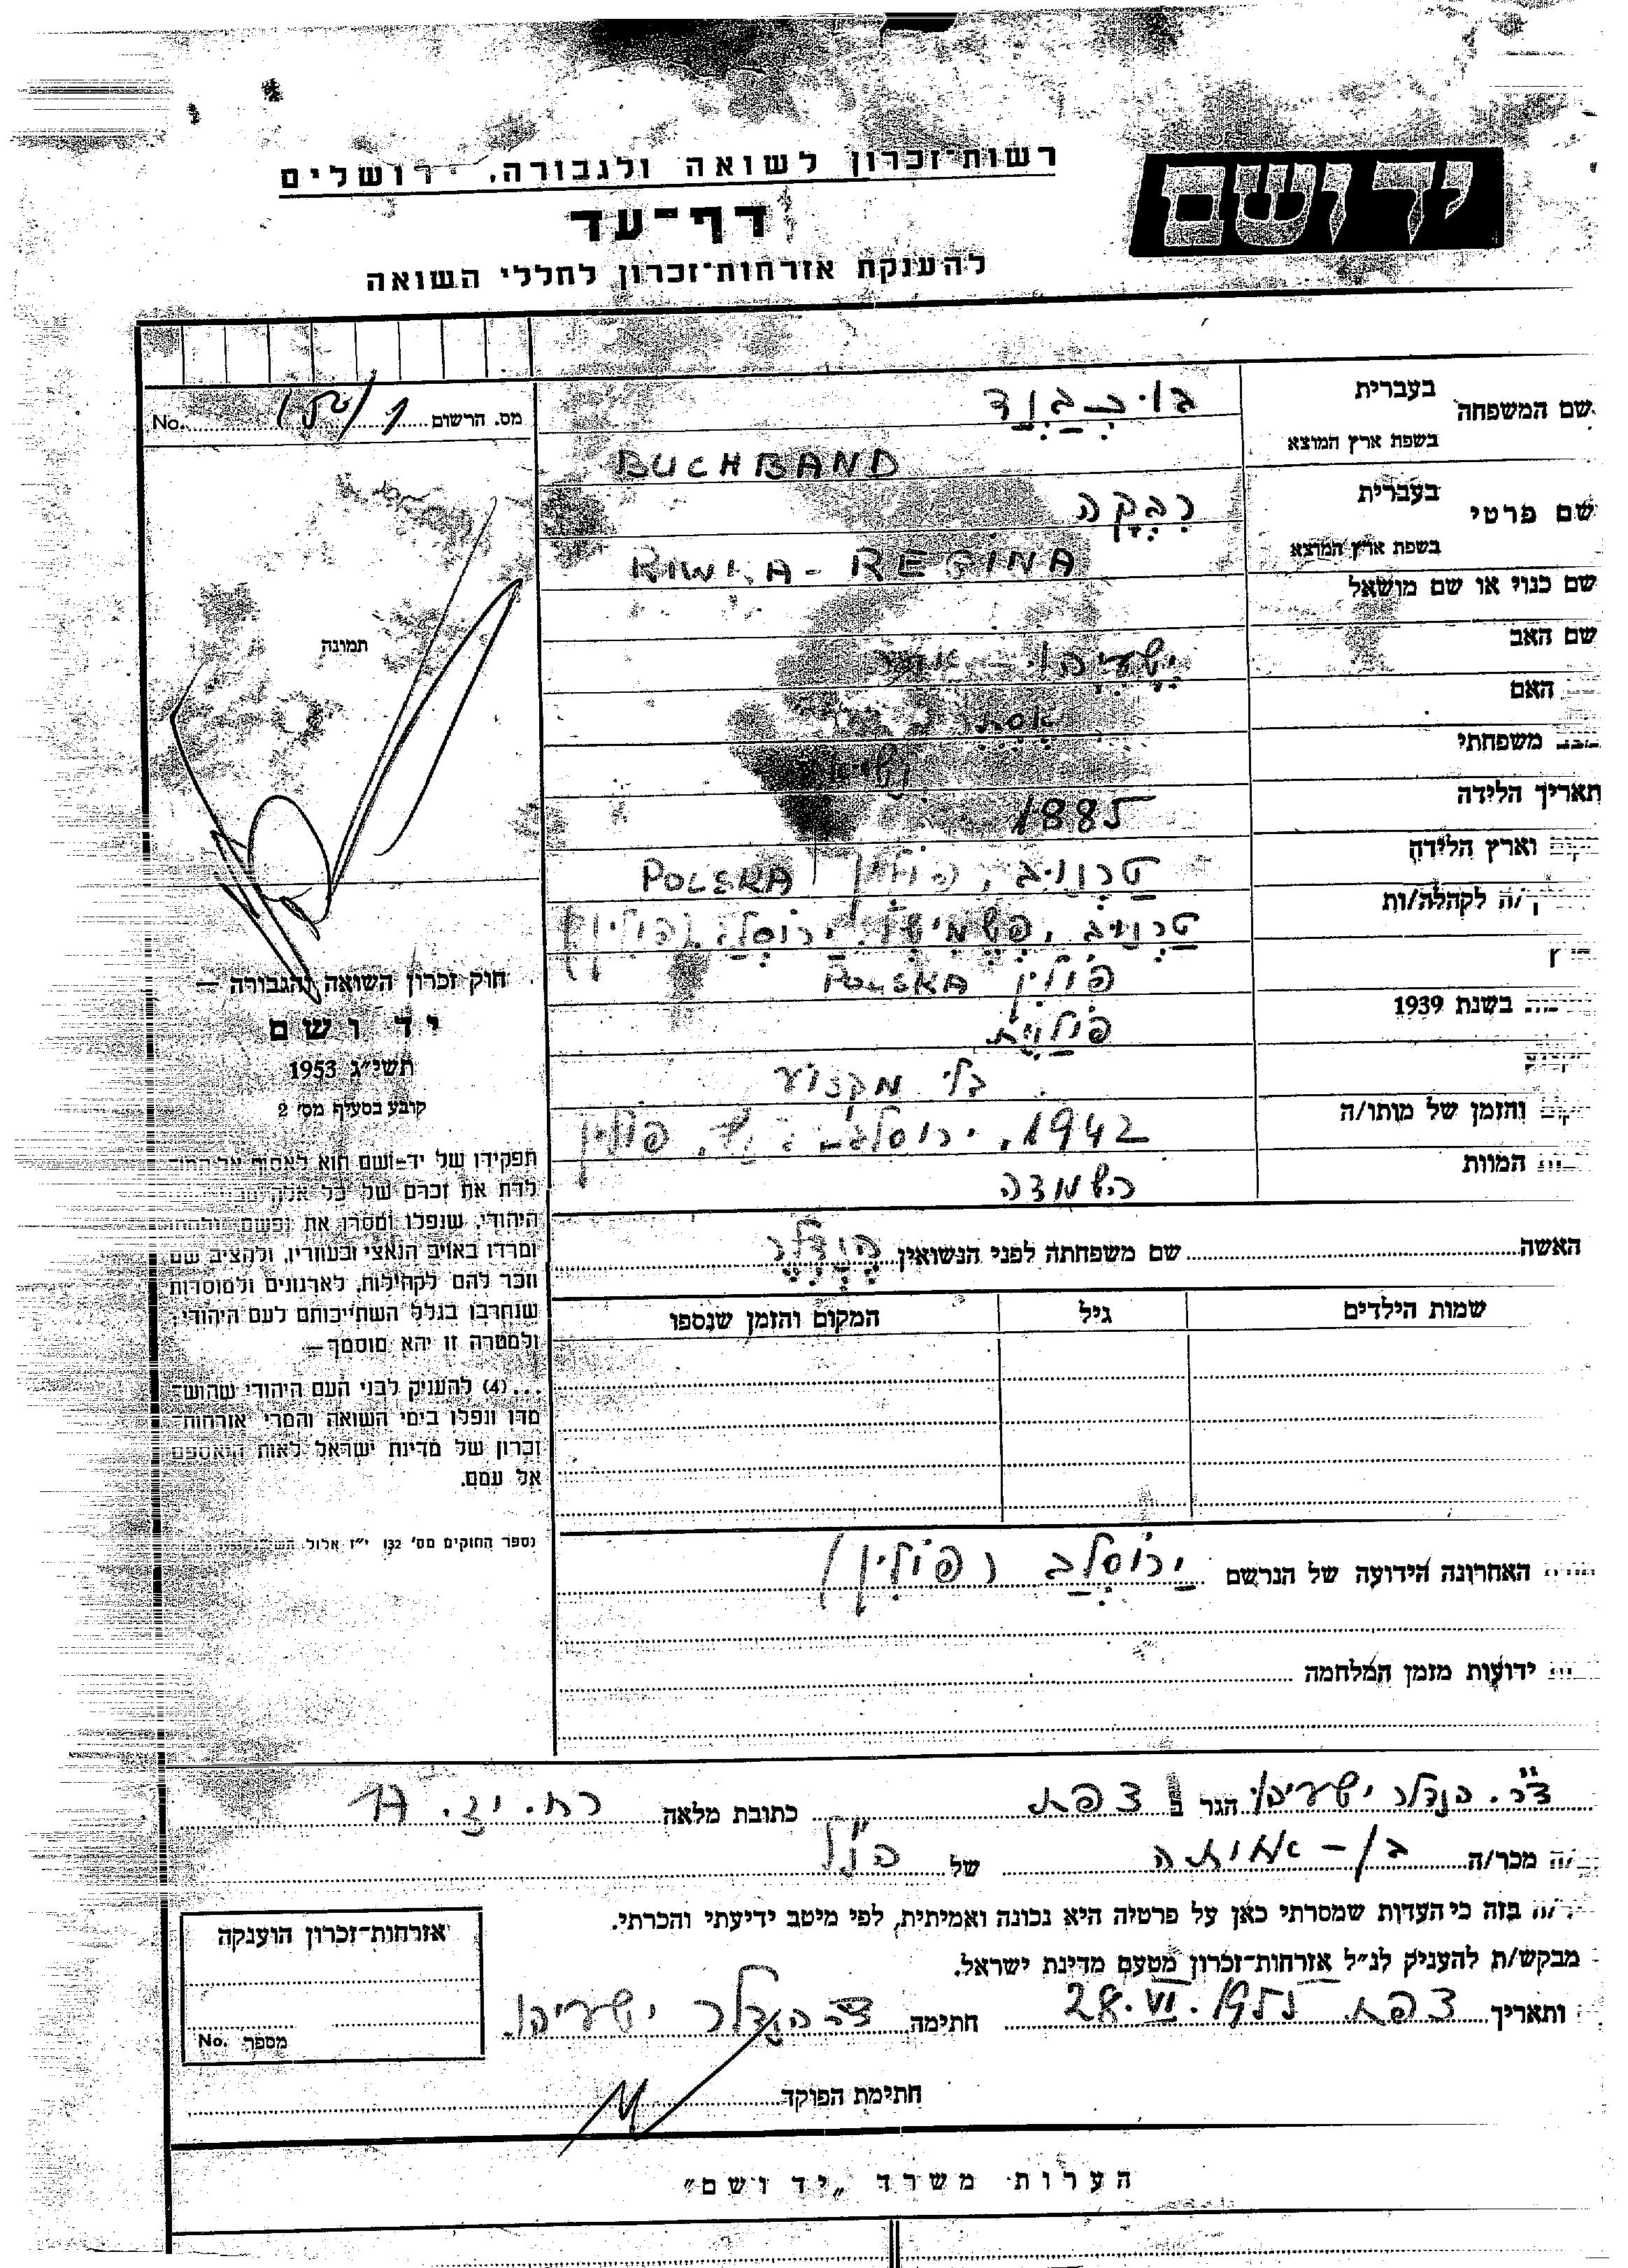 יד ושם
רשות־זכרון לשואה ולגבורה, ירושלים
דף־עד
להענקת אזרחות־זכרון לחללי השואה
מס. הרשום No.
שם המשפחה
בעברית בּוּכְבַּנְד
בשפת ארץ המוצא BUCHBAND
שם פרטי
בעברית רִבְקָה
בשפת ארץ המוצא RIWKA - REGINA
שם כנוי או שם מושאל
שם האב ישעיהו -
האם אסתר
משפחתי נשואה
תאריך הלידה 1885
וארץ הלידה טרנוב, פולין POLSKA
לקהלה/ות טרנוב, פשמישל, ירוסלב (פולין)
פולין POLSKA
בשנת 1939 פולנית
בלי מקצוע
והזמן של מותו/ה 1942, ירוסלב, פולין
המוות השמדה
תמונה
חוק זכרון השואה והגבורה —
יד ושם
תשי״ג 1953
קובע בסעיף מס׳ 2
תפקידו של יד־ושם הוא לאסוף אל המולדת
לדת את זכרם של כל אלה
היהודי, שנפלו ומסרו את נפשם,
ומרדו באויב הנאצי ובעוזריו, ולהציב שם
וזכר להם לקהילות, לארגונים ולמוסדות
שנחרבו בגלל השתייכותם לעם היהודי;
ולמטרה זו יהא מוסמך —
...(4) להעניק לבני העם היהודי שהוש־
מדו ונפלו בימי השואה והמרי אזרחות־
זכרון של מדינת ישראל לאות היאספם
אל עמם.
(ספר החוקים מס׳ 132 י״ז אלול
האשה שם משפחתה לפני הנשואין הֶנְדְלֶר
שמות הילדים גיל המקום והזמן שנספו
האחרונה הידועה של הנרשם ירוסלב (פולין)
ידועות מזמן המלחמה
ד״ר הנדלר ישעיהו הגר ב צפת כתובת מלאה רח. יז. 17
מכר/ה בן-אחותה של הנ״ל
בזה כי העדות שמסרתי כאן על פרטיה היא נכונה ואמיתית, לפי מיטב ידיעתי והכרתי.
מבקש/ת להעניק לנ״ל אזרחות־זכרון מטעם מדינת ישראל.
ותאריך צפת 28.VI.1955 חתימה ד״ר הנדלר ישעיהו
אזרחות־זכרון הוענקה
מספר No.
חתימת הפוקד
הערות משרד „יד ושם״